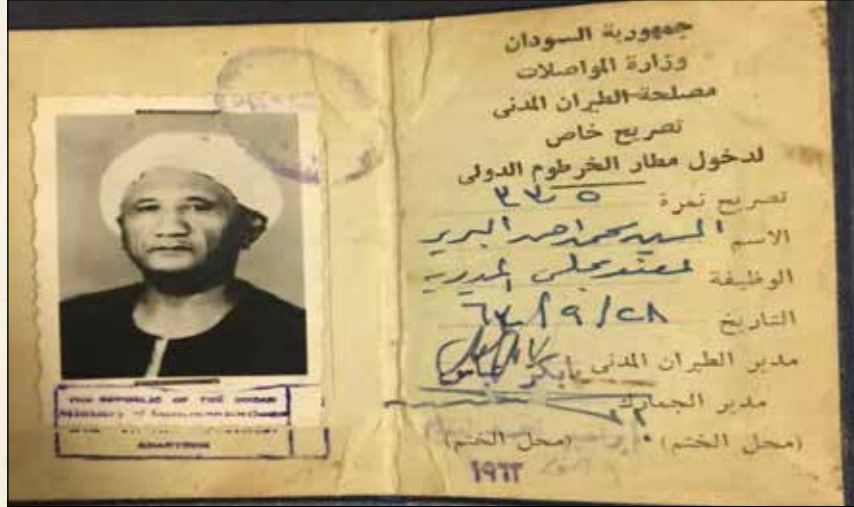 جمهورية السودان
وزارة المواصلات
مصلحة الطيران المدنى
تصريح خاص
لدخول مطار الخرطوم الدولى
تصريح نمرة ٥ ٣٣
الاسم السيد محمد احمد البرير
الوظيفة مجلس المديرية
التاريخ ٢٨/٩/٦٣
مدير الطيران المدنى بابكر
مدير الجمارك
(محل الختم) (محل الختم)
١٩٦٣
THE REPUBLIC OF THE SUDAN
KHARTOUM